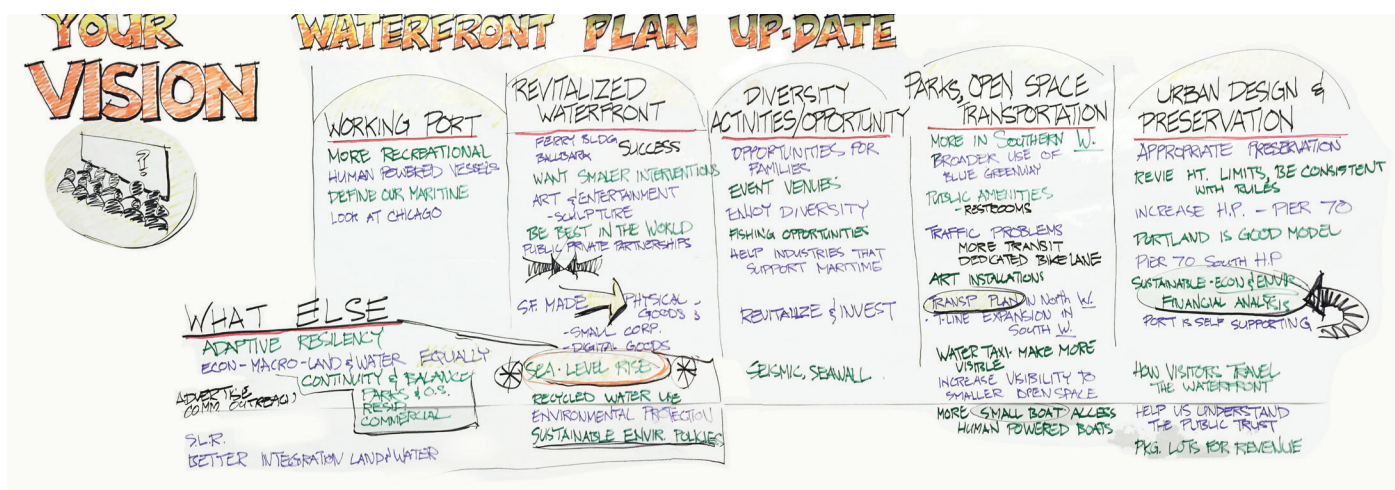 YOUR
VISION
WATERFRONT PLAN UP-DATE
WORKING PORT
MORE RECREATIONAL
HUMAN POWERED VESSELS
DEFINE OUR MARITIME
LOOK AT CHICAGO
REVITALIZED
WATERFRONT
FERRY BLDG
BALLPARK SUCCESS
WANT SMALER INTERVENTIONS
ART & ENTERTAINMENT
-SCULPTURE
BE BEST IN THE WORLD
PUBLIC/PRIVATE PARTNERSHIPS
S.F. MADE PHYSICAL
GOODS &
-SMALL CORP.
-DIGITAL GOODS
SEA-LEVEL RISE
RECYCLED WATER USE
ENVIRONMENTAL PROTECTION
SUSTAINABLE ENVIR. POLICIES
DIVERSITY
ACTIVITIES/OPPORTUNITY
OPPORTUNITIES FOR
FAMILIES
EVENT VENUES
ENJOY DIVERSITY
FISHING OPPORTUNITIES
HELP INDUSTRIES THAT
SUPPORT MARITIME
REVITALIZE & INVEST
SEISMIC, SEAWALL.
PARKS, OPEN SPACE
TRANSPORTATION
MORE IN SOUTHERN W.
BROADER USE OF
BLUE GREENWAY
PUBLIC AMENITIES
-RESTROOMS
TRAFFIC PROBLEMS
MORE TRANSIT
DEDICATED BIKE LANE
ART INSTALLATIONS
TRANSP PLAN IN NORTH W.
T-LINE EXPANSION IN
SOUTH W.
WATER TAXI- MAKE MORE
VISIBLE
INCREASE VISIBILITY TO
SMALLER OPEN SPACE
MORE SMALL BOAT ACCESS
HUMAN POWERED BOATS
URBAN DESIGN &
PRESERVATION
APPROPRIATE PRESERVATION
REVIE HT. LIMITS, BE CONSISTENT
WITH RULES
INCREASE H.P. - PIER 70
PORTLAND IS GOOD MODEL
PIER 70 SOUTH H.P
SUSTAINABLE-ECON & ENVIR
FINANCIAL ANALYSIS
PORT IS SELF SUPPORTING
HOW VISITORS TRAVEL
THE WATERFRONT
HELP US UNDERSTAND
THE PUBLIC TRUST
PKG. LOTS FOR REVENUE
WHAT ELSE
ADAPTIVE RESILENCY
ECON-MACRO-LAND & WATER EQUALLY
CONTINUITY & BALANCE
PARKS & O.S.
RESID.
COMMERCIAL
ADVERTISE
COMM. OUTREACH
S.L.R.
BETTER INTEGRATION LAND/WATER